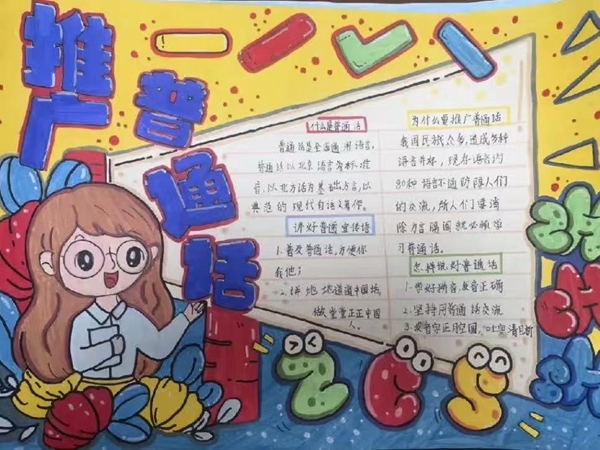 推广普通话
什么是普通话
普通话是全国通用语言,
普通话以北京语音为标准
音,以北方话为基础方言,以
典范的现代白话文著作。
讲好普通宣传语
1.普及普通话,方便你
我他;
2.讲地地道道中国话,
做堂堂正正中国
人。
为什么要推广普通话
我国民族众多,造成多种
语言并存,现存语言约
80种语言不通阻碍人们
的交流,所人们要消
除方言隔阂就必须学
习普通话。
怎样说好普通话
1.学好拼音,发音正确
2.坚持用普通话交流
3.发音字正腔圆,吐字清
Z C S